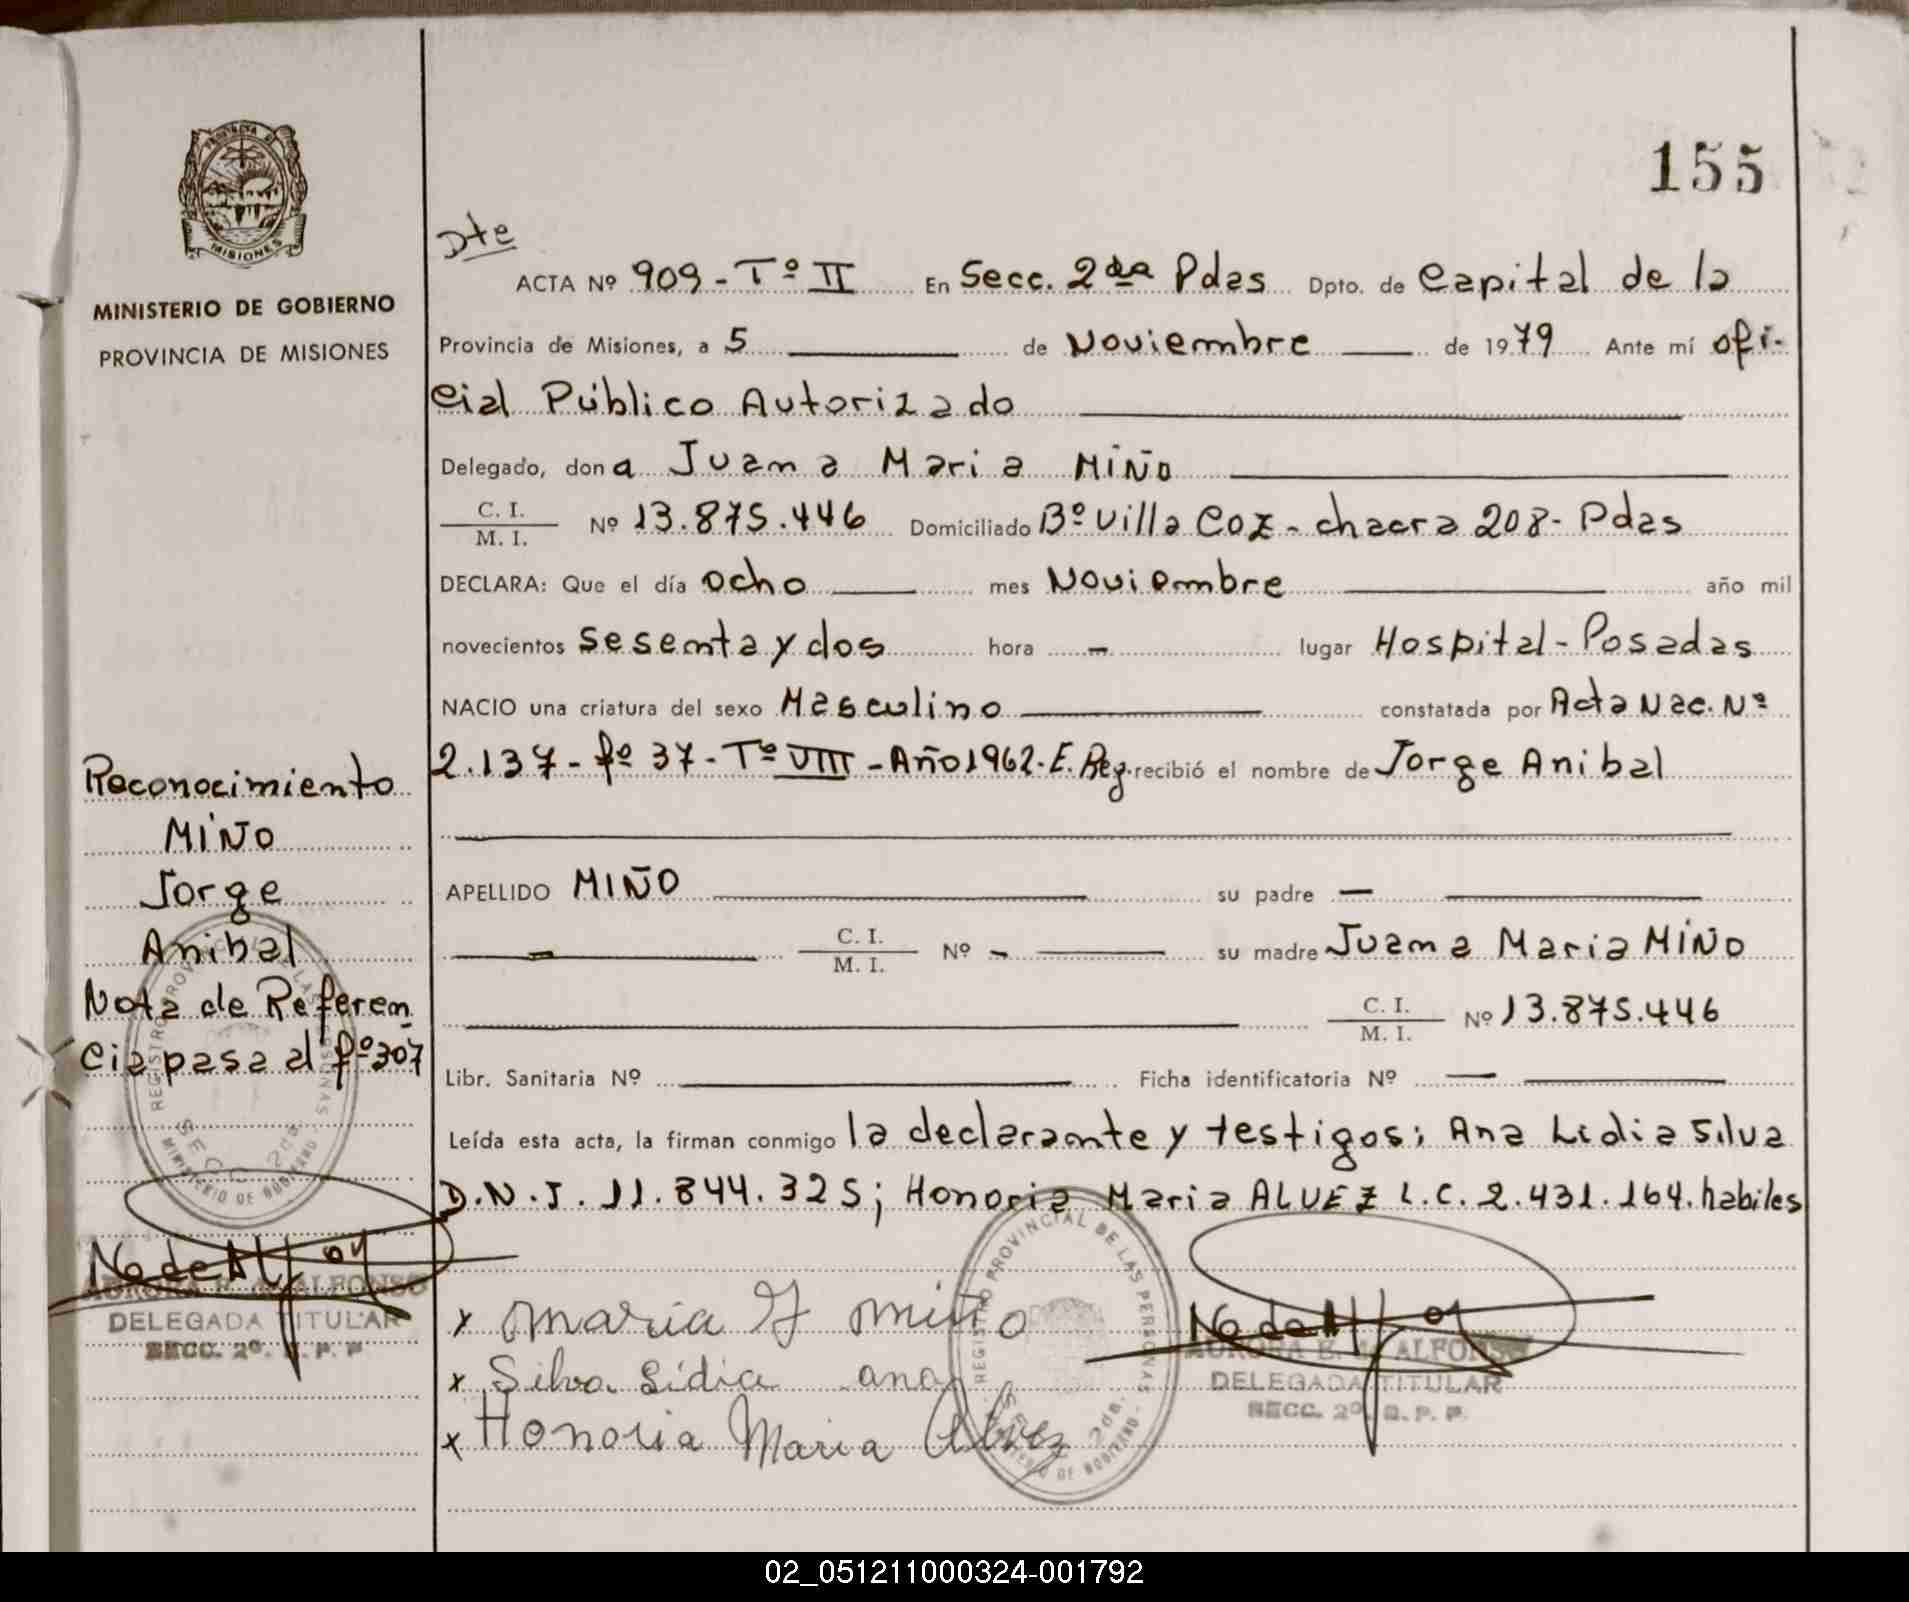 155
PROVINCIA DE
MISIONES
MINISTERIO DE GOBIERNO
PROVINCIA DE MISIONES
Dte
ACTA Nº 909 - Tº II En Secc. 2da Pdas Dpto. de Capital de la
Provincia de Misiones, a 5 de Noviembre de 1979 Ante mí ofi-
cial Público Autorizado
Delegado, dona Juana Maria MIÑO
C. I.
M. I. Nº 13.875.446 Domiciliado Bº Villa Coz - chacra 208 - Pdas
DECLARA: Que el día ocho mes Noviembre año mil
novecientos sesenta y dos hora - lugar Hospital - Posadas
NACIO una criatura del sexo Masculino constatada por Acta Nac. Nº
2.137 - fº 37 - Tº VIII - Año 1962. E. Reg. recibió el nombre de Jorge Anibal
APELLIDO MIÑO su padre —
- C. I.
M. I. Nº - su madre Juana Maria MIÑO
C. I.
M. I. Nº 13.875.446
Libr. Sanitaria Nº Ficha identificatoria Nº
Leída esta acta, la firman conmigo la declarante y testigos; Ana Lidia Silva
D.N.I. 11.844.325; Honoria Maria ALVEZ L.C. 2.431.164. habiles
x Maria J Miño
x Silva Lidia ana
x Honoria Maria Alvez
REGISTRO PROVINCIAL DE LAS PERSONAS
SECC 2da.
MINISTERIO DE GOBIERNO
AURORA E. M. ALFONSO
DELEGADA TITULAR
SECC. 2º. R. P. P.
Reconocimiento
MIÑO
Jorge
Anibal
Nota de Referen
cia pasa al fº 307
REGISTRO PROVINCIAL DE LAS PERSONAS
SECC 2da.
MINISTERIO DE GOBIERNO
AURORA E. M. ALFONSO
DELEGADA TITULAR
SECC. 2º. R. P. P
02_051211000324-001792